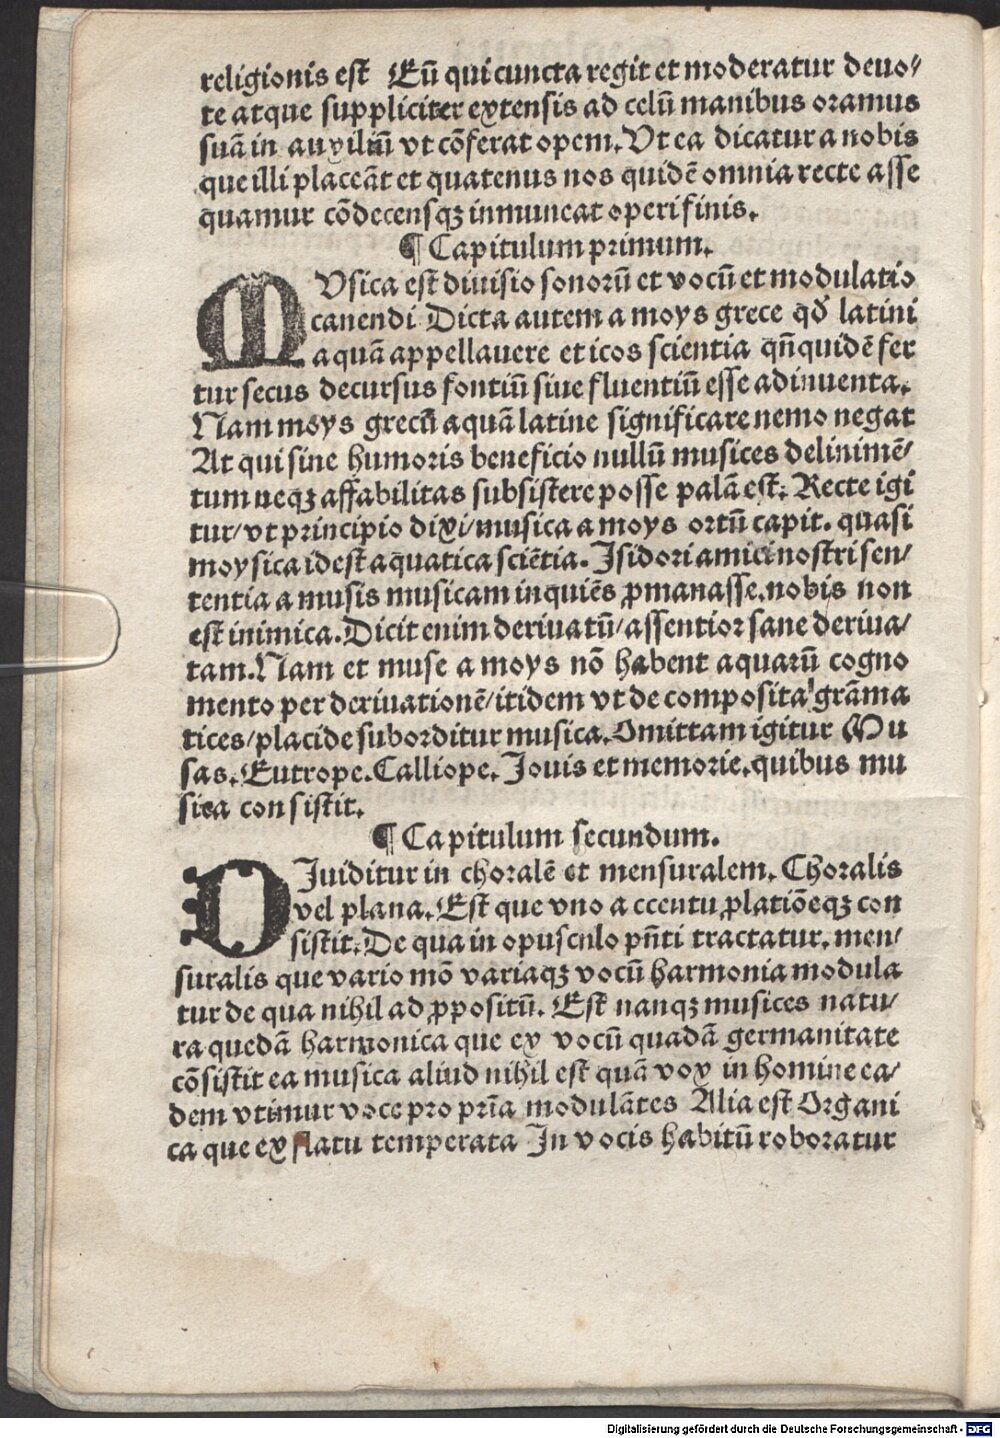 religionis est Eū qui cuncta regit et moderatur deuo/
te atque suppliciter extensis ad celū manibus oramus
suā in auxiliū vt cōferat opem. Vt ea dicatur a nobis
que illi placeāt et quatenus nos quidē omnia recte asse
quamur cōdecensqꝫ inmuneat operi finis.
¶ Capitulum primum.
MVsica est diuisio sonorū et vocū et modulatio
canendi Dicta autem a moys grece qð latini
aquā appellauere et icos scientia qñquidē fer
tur secus decursus fontiū siue fluentiū esse adinuenta.
Nam moys grecū aquā latine significare nemo negat
At qui sine humoris beneficio nullū musices delinimē/
tum neqꝫ affabilitas subsistere posse palā est. Recte igi
tur/ vt principio dixi/ musica a moys ortū capit. quasi
moysica idest aquatica sciētia. Isidori amici nostri sen/
tentia a musis musicam inquiēs ꝓmanasse. nobis non
est inimica. Dicit enim deriuatū/ assentior sane deriua/
tam. Nam et muse a moys nō habent aquarū cogno
mento per deriuationē/ itidem vt de composita grāma
tices/ placide suborditur musica. Omittam igitur Mu
sas. Eutrope. Calliope. Iouis et memorie. quibus mu
sica consistit.
¶ Capitulum secundum.
DIuiditur in choralē et mensuralem. Choralis
vel plana. Est que vno accentu ꝓlatiōeqꝫ con
sistit. De qua in opusculo pn̄ti tractatur. men/
suralis que vario mō variaqꝫ vocū harmonia modula
tur de qua nihil ad ꝓpositū. Est nanqꝫ musices natu/
ra quedā harmonica que ex vocū quadā germanitate
cōsistit ea musica aliud nihil est quā vox in homine ea/
dem vtimur voce pro pria modulātes Alia est Organi
ca que ex flatu temperata In vocis habitū roboratur
Digitalisierung gefördert durch die Deutsche Forschungsgemeinschaft - DFG